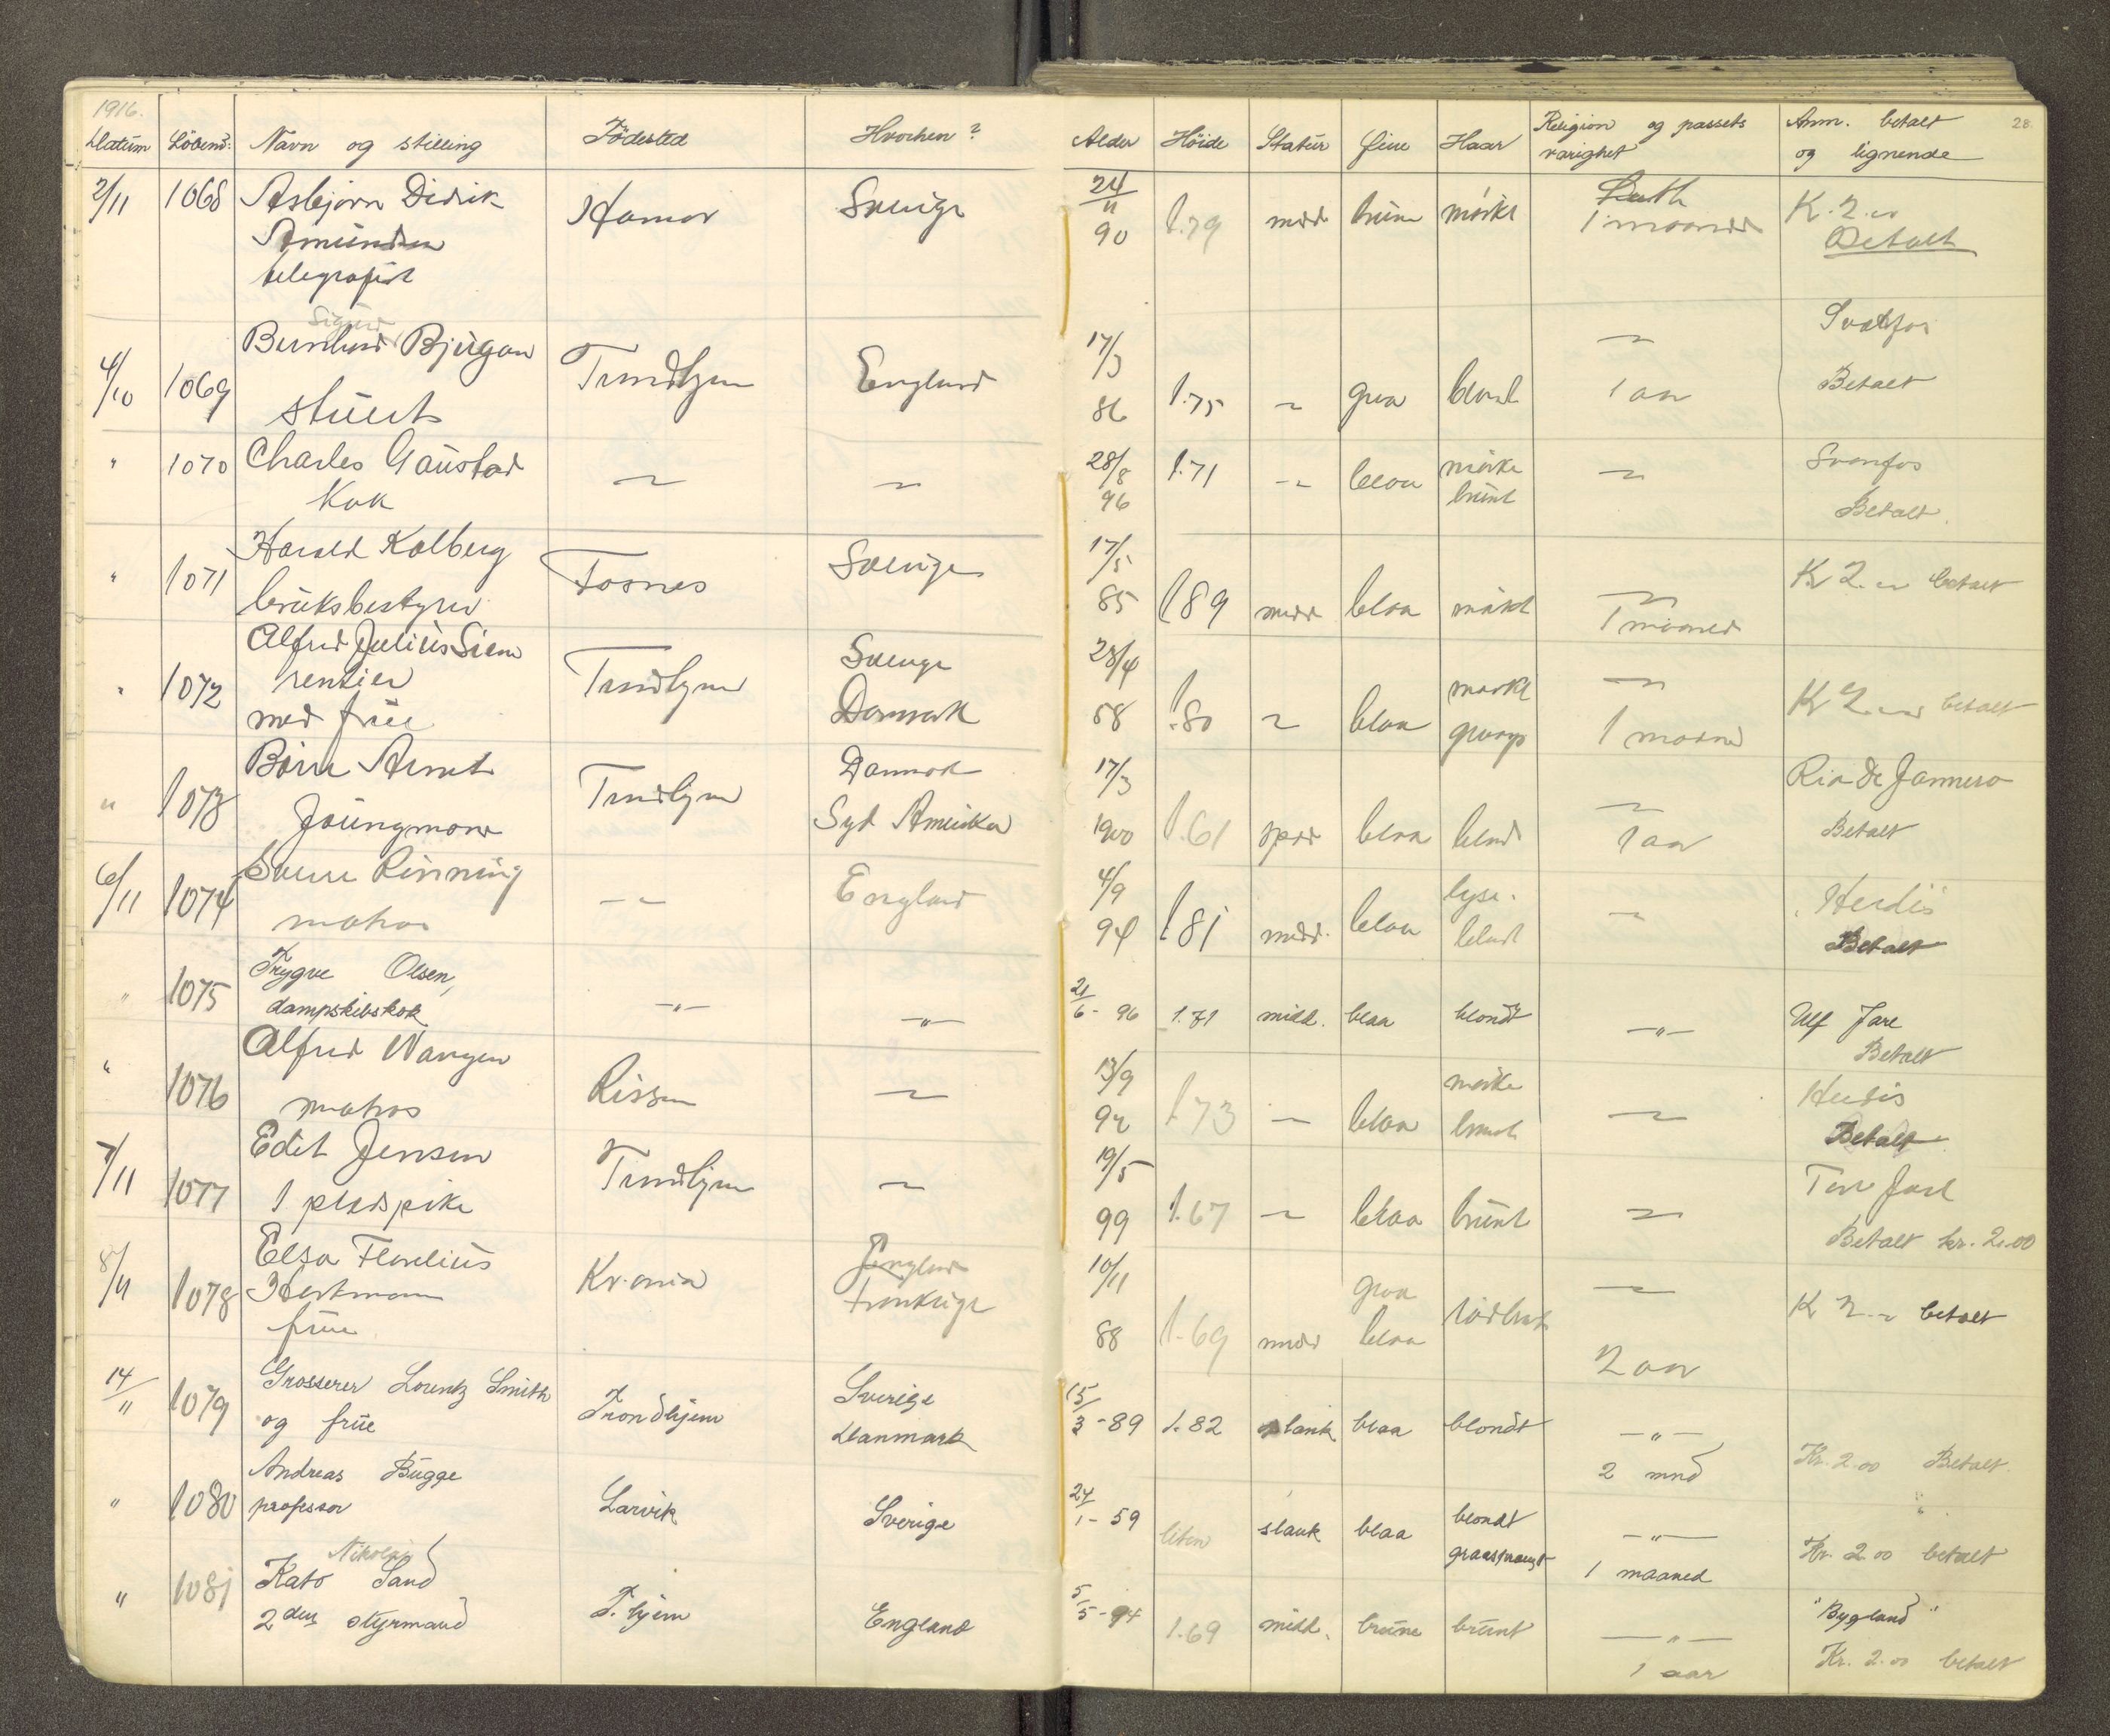 1916.
28.
Datum Löbenº: Navn og stilling Födested Hvorhen? Alder Höide Statur Öine Haar Religion og passets varighet Anm. betalt og lignende
2/11 1068 Asbjörn Didrik Hamar Sverige 24/11 90 1.79 midd brune mörkt Luth
Amundsen 1 maaned K. 2.00
telegrafist Betalt
4/10 1069 Bernhard Sigurd Bjugan Trondhjem England 17/3 86 1.75 ~ graa blond ~ Svartfos
stuert 1 aar Betalt
" 1070 Charles Gaustad ~ ~ 28/8 96 1.71 ~ blaa mörke brunt ~ Svanfos
Kok Betalt.
" 1071 Harald Kolberg Fosnes Sverige 17/5 85 1.89 midd blaa mörkt ~ Kr 2.00 betalt
bruksbestyrer 1 maaned
" 1072 Alfred Julius Siem Trondhjem Sverige 23/4 58 1.80 ~ blaa mörkt ~
rentier Danmark graasp Kr 2.00 betalt
med frue 1 maaned
" 1073 Börre Arnt Trondhjem Danmark 17/3 1900 1.61 spæd blaa blond ~ Rio de Janneiro
Jöungmand Syd Amerika 1 aar Betalt
6/11 1074 Sverre Rinning -~ England 4/9 94 1.81 midd. blaa lyse. blond ~ Herdis
matros Betalt
" 1075 Trygve Olsen, -"- -"- 21/6-96 1.71 midd. blaa blondt -"- Ulf Jarl
dampskibskok Betalt
" 1076 Alfred Wangen Rissen ~ 13/9 92 1.73 ~ blaa mörke brunt ~ Herdis
matros Betalt
7/11 1077 Edit Jensen Trondhjem ~ 19/5 99 1.67 ~ blaa brunt ~ Tore Jarl
1 pladspike Betalt kr. 2.00
8/11 1078 Elsa Florelius Kr.ania England 10/11 88 1.69 midd graa blaa rödbrunt ~ K 2.~ betalt
Hartmann Frankrige
frue 2 aar
14/11 1079 Grosserer Lorentz Smith Trondhjem Sverige 15/3-89 1.82 slank blaa blondt -"-
og frue Danmark 2 mnd Kr. 2.00 Betalt.
" 1080 Andreas Bugge Larvik Sverige 24/1-59 liten slank blaa blondt graasprængt -"- "
professor 1 maaned Kr. 2.00 betalt
" 1081 Kato Nikolai Sand T.hjem England 5/5-94 1.69 midd. brune brunt -"- "Bygland"
2den styrmand 1 aar Kr. 2.00 betalt